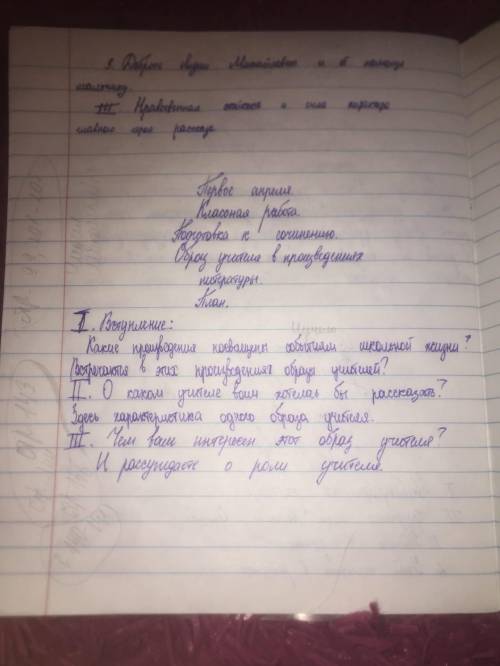 3. Доброта Лидии Михайловны и её помощь
мальчику.
III. Нравственная стойкость и сила характера
главного героя рассказа.
Первое апреля.
Классная работа.
Подготовка к сочинению.
Образ учителя в произведениях
литературы.
План.
I. Вступление:
Какие произведения посвящены событиям школьной жизни?
Встречаются в этих произведениях образы учителей?
II. О каком учителе вам хотелось бы рассказать?
Здесь характеристика одного образа учителя.
III. Чем вам интересен этот образ учителя?
И рассуждаете о роли учителя.